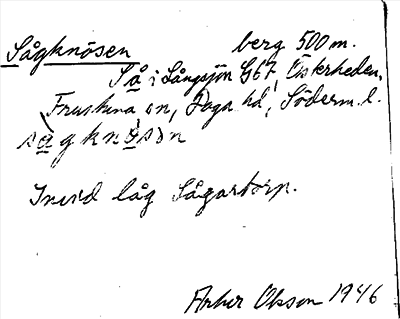 Sågknösen berg 500 m.
Så i Långsjön G67, Österheden,
Frustuna sn, Daga hd, Söderm. l.
sågknösən
Invid låg Sågartorp.
Olsson 1946